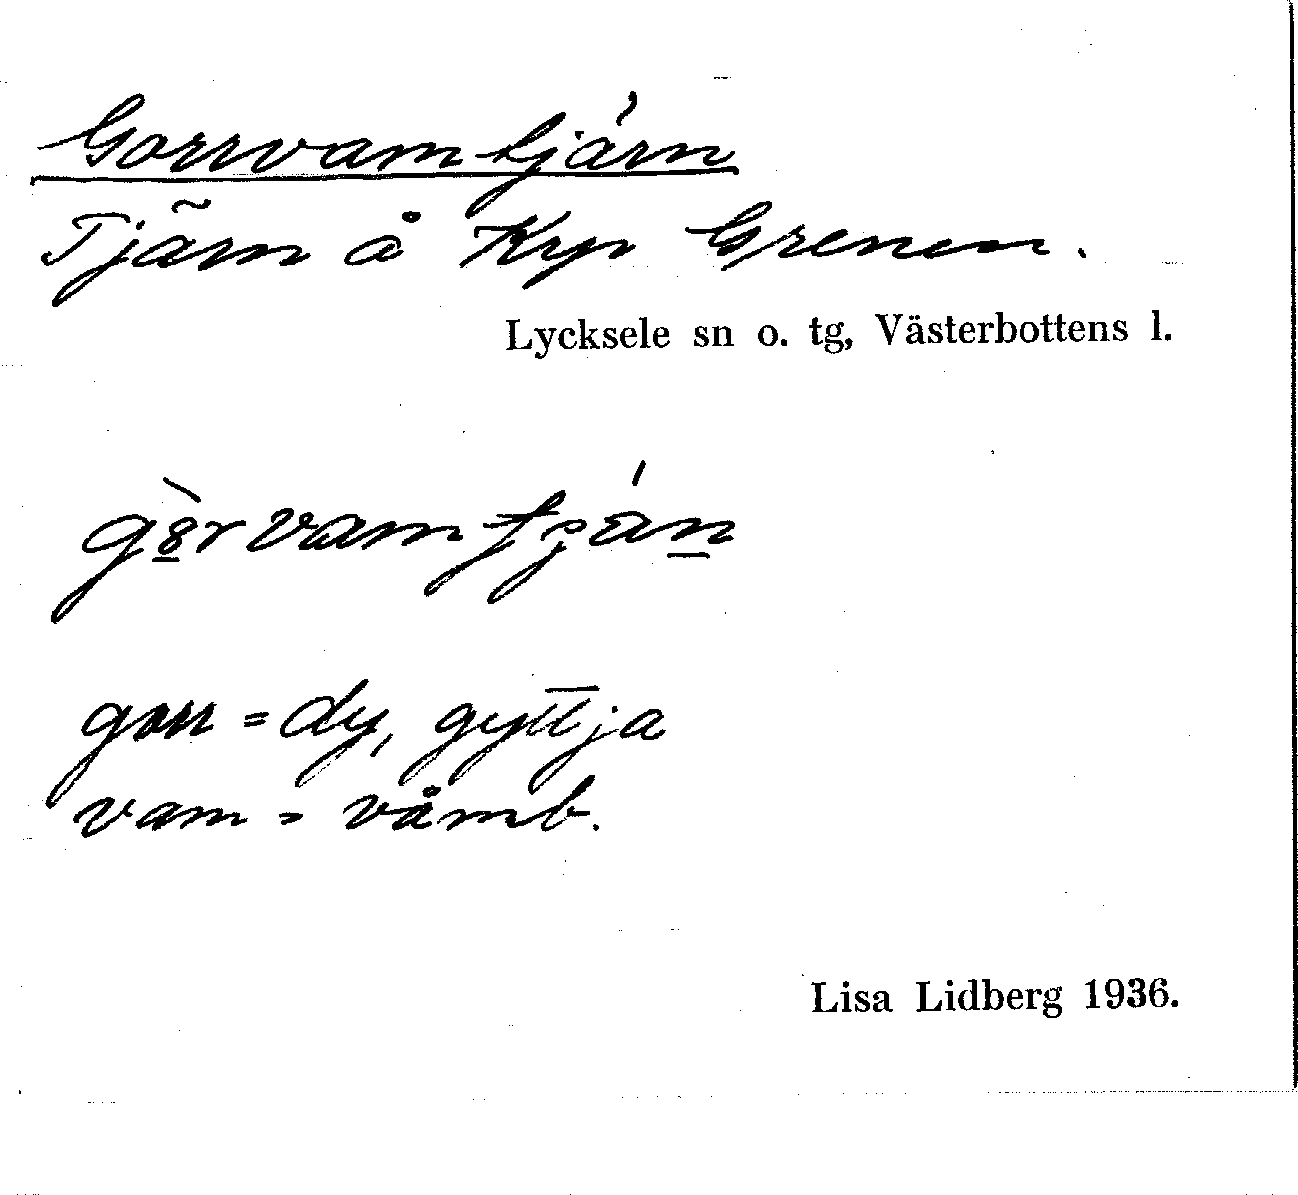 Gorrvamtjärn
Tjärn å Krp Grenen.
Lycksele sn o. tg, Västerbottens l.
gorr = dy, gyttja
vam = våmb.
Lisa Lidberg 1936.